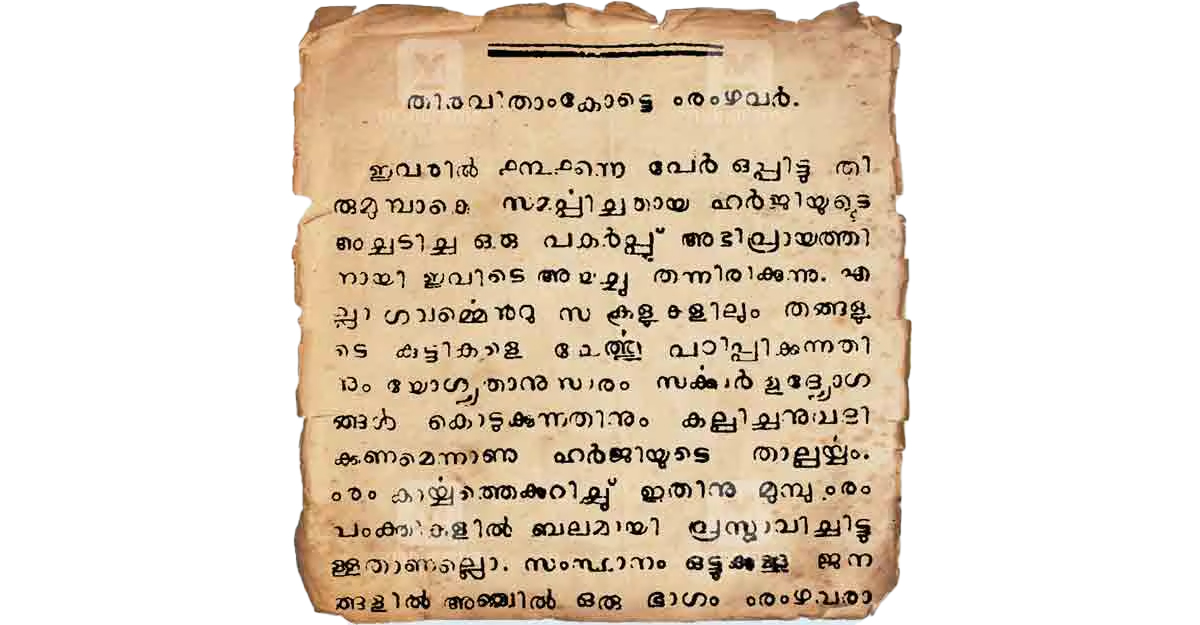 തിരുവിതാംകോട്ടെ ഈഴവർ.
ഇവരിൽ പേർ ഒപ്പിട്ടു തി
രുമുമ്പാകെ സമൎപ്പിച്ചതായ ഹർജിയുടെ
അച്ചടിച്ച ഒരു പകർപ്പു് അഭിപ്രായത്തി
നായി ഇവിടെ അയച്ചു തന്നിരിക്കുന്നു. എ
ല്ലാ ഗവമ്മെൻറു സ്കൂളുകളിലും തങ്ങളു
ടെ കുട്ടികളെ ചേൎത്തു പഠിപ്പിക്കുന്നതി
നും യോഗ്യതാനുസാരം സൎക്കാർ ഉദ്യോഗ
ങ്ങൾ കൊടുക്കുന്നതിനും കല്പിച്ചനുവദി
ക്കണമെന്നാണു ഹർജിയുടെ താല്പൎയ്യം.
ഈ കാൎയ്യത്തെക്കുറിച്ചു് ഇതിനു മുമ്പു ഈ
പംക്തികളിൽ ബലമായി പ്രസ്താവിച്ചിട്ടു
ള്ളതാണല്ലൊ. സംസ്ഥാനം ഒട്ടുക്കുള്ള ജന
ങ്ങളിൽ അഞ്ചിൽ ഒരു ഭാഗം ഈഴവരാ